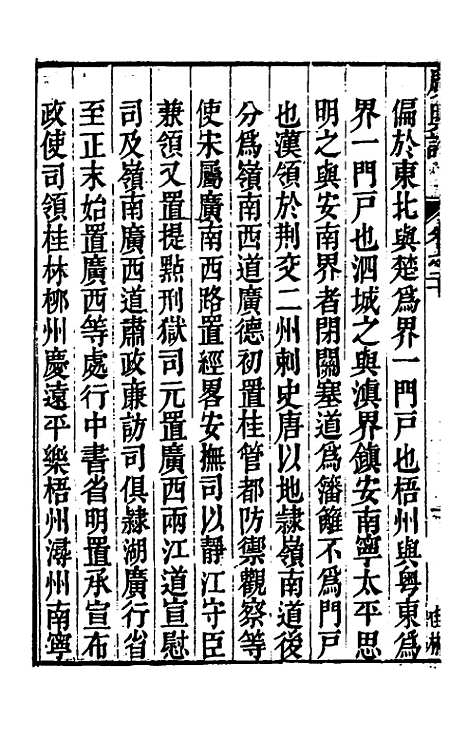 廣輿記
卷之二十
偏於東北與楚爲界一門戸也梧州與粤東爲
界一門戸也泗城之與滇界鎮安南寧太平思
明之與安南界者閉關塞道爲籓籬不爲門戸
也漢領於荆交二州刺史唐以地隷嶺南道後
分爲嶺南西道廣德初置桂管都防禦觀察等
使宋屬廣南西路置經畧安撫司以靜江守臣
兼領又置提點刑獄司元置廣西兩江道宣慰
司及嶺南廣西道肅政亷訪司俱隷湖廣行省
至正末始置廣西等處行中書省明置承宣布
政使司領桂林柳州慶遠平樂梧州潯州南寧